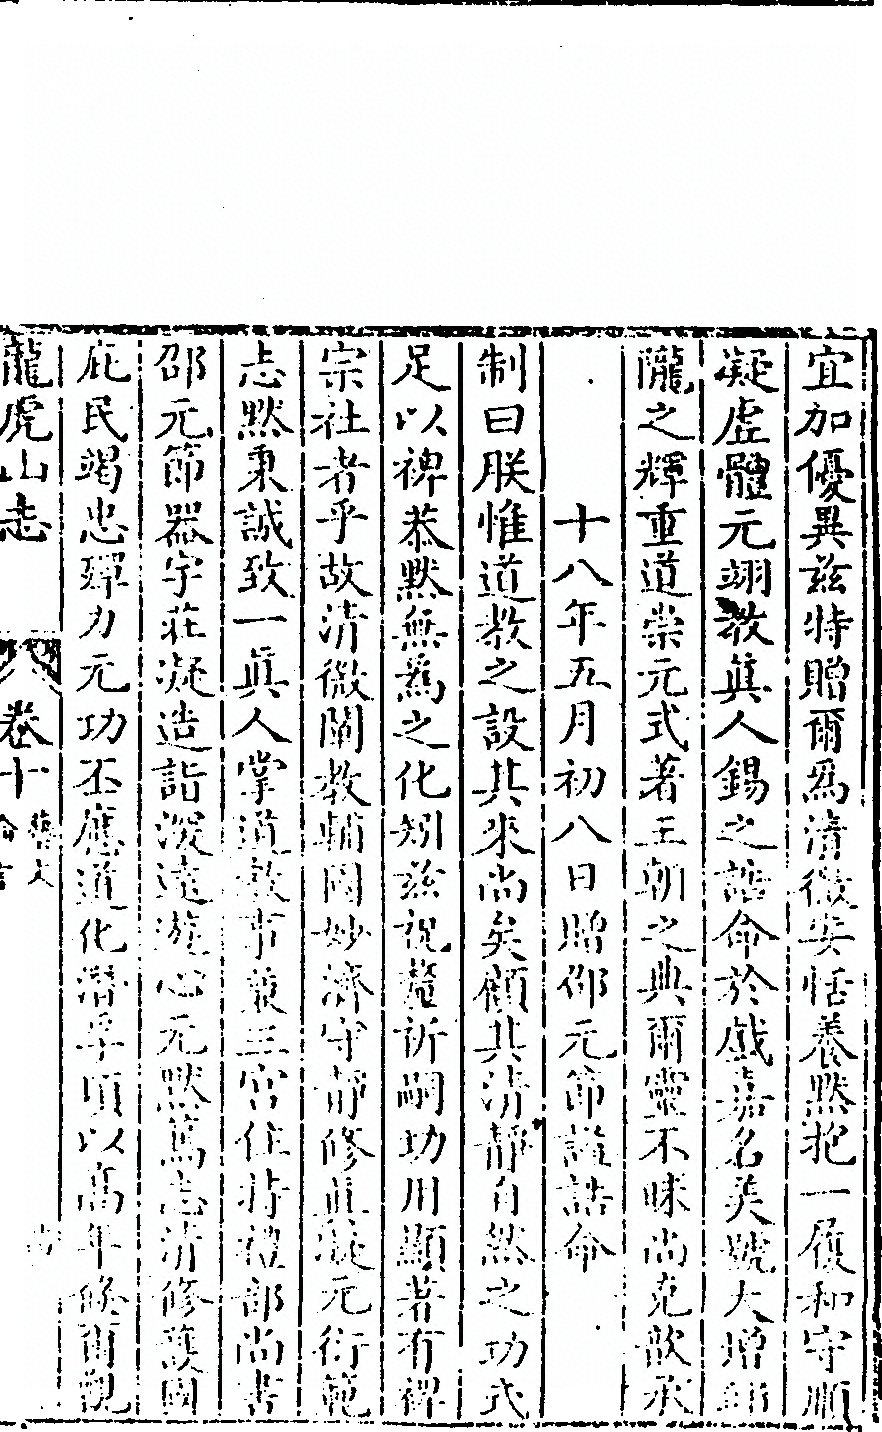 宜加優異茲特贈爾爲清微安恬養黙抱一履和守順
凝虛體元翊教眞人錫之誥命於戲嘉名美號大增
隴之輝重道崇元式著王朝之典爾靈不昧尚克歆承
十八年五月初八日贈邵元節謚誥命
制曰朕惟道教之設其來尚矣顧其清靜自然之功式
足以裨恭黙無爲之化矧茲祝釐祈嗣功用顯著有裨
宗社者乎故清微闡教輔國妙濟守靜修眞凝元衍範
志黙秉誠致一眞人掌道教事兼三宮住持禮部尚書
邵元節器宇莊凝造詣深遠遊心元黙篤志清修護國
庇民竭忠殫力元功丕應道化潛孚頃以高年倏爾觀
龍虎山志 卷十